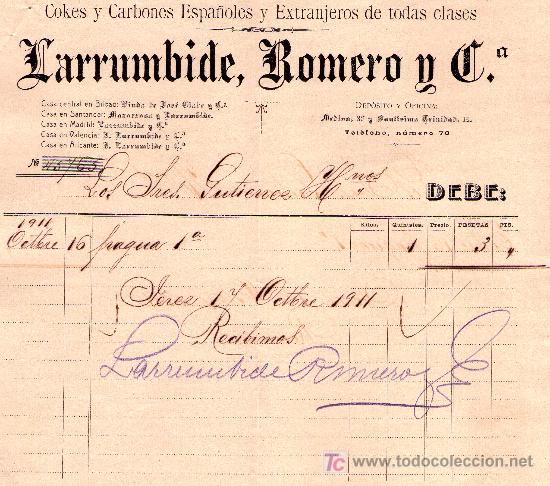 Cokes y Carbones Españoles y Extranjeros de todas clases
Larrumbide, Romero y C.ª
Casa central en Bilbao: Viuda de José Claire y Cª.
Casa en Santander: Mazarrasa y Larrumbide.
Casa en Madrid: Larrumbide y Cª
Casa en Valencia: J. Larrumbide y Cª
Casa en Alicante: J. Larrumbide y Cª
DEPÓSITO Y OFICINA:
Medina, 37 y Santísima Trinidad, 14.
Teléfono, número 70
Nº
Los Sres. Gutierrez Hnos
DEBE:
Kilos. Quintales. Precio PESETAS Cts.
1911
Octbre 16 fragua 1ª 1 3 "
Jerez 17 Octbre 1911
Recibimos
Larrumbide Romero y C
TC www.todocoleccion.net